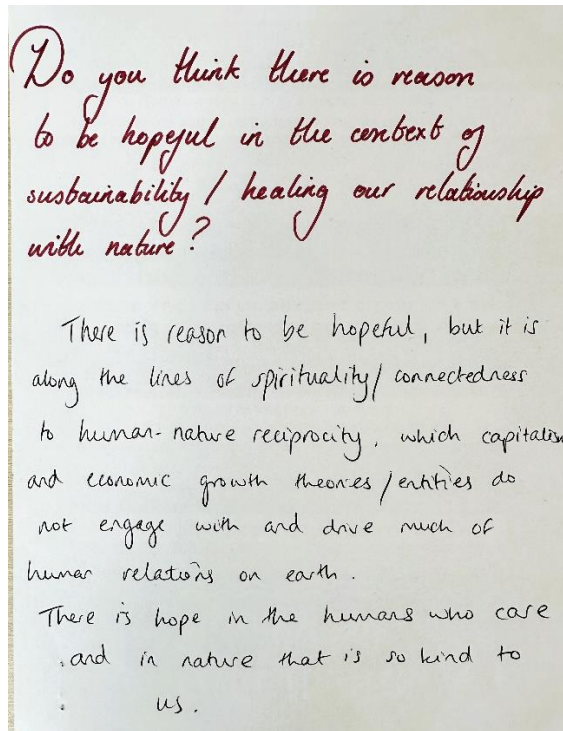 Do you think there is reason
to be hopeful in the context of
sustainability / healing our relationship
with nature?
There is reason to be hopeful, but it is
along the lines of spirituality/ connectedness
to human-nature reciprocity, which capitalism
and economic growth theories/entities do
not engage with and drive much of
human relations on earth.
There is hope in the humans who care
and in nature that is so kind to
us.